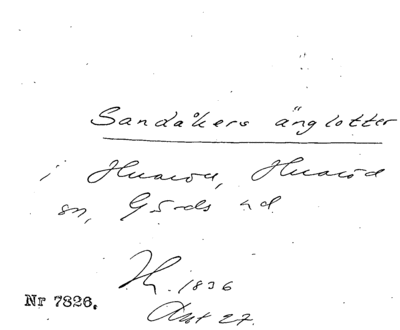 Sandåkers änglotter
i Huaröd, Huaröd
sn, Gärds hd
1836
Nr 7826.
Akt 27.